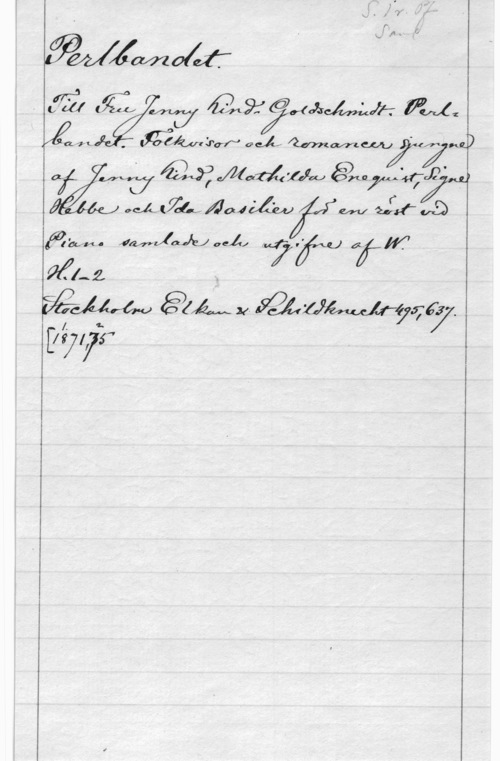 S. 1 r. Of
Saml
Perlbandet.
Till Fru Jenny Lind-Goldschmidt. Perl-
bandet. Folkvisor och romancer sjungne
af Jenny Lind, Mathilda Enequist, Signe
Hebbe och Ida Basilier för en röst vid
Piano samlade och utgifne af W.
H. 1-2
Stockholm Elkan & Schildknecht 495,637.
[1871,75